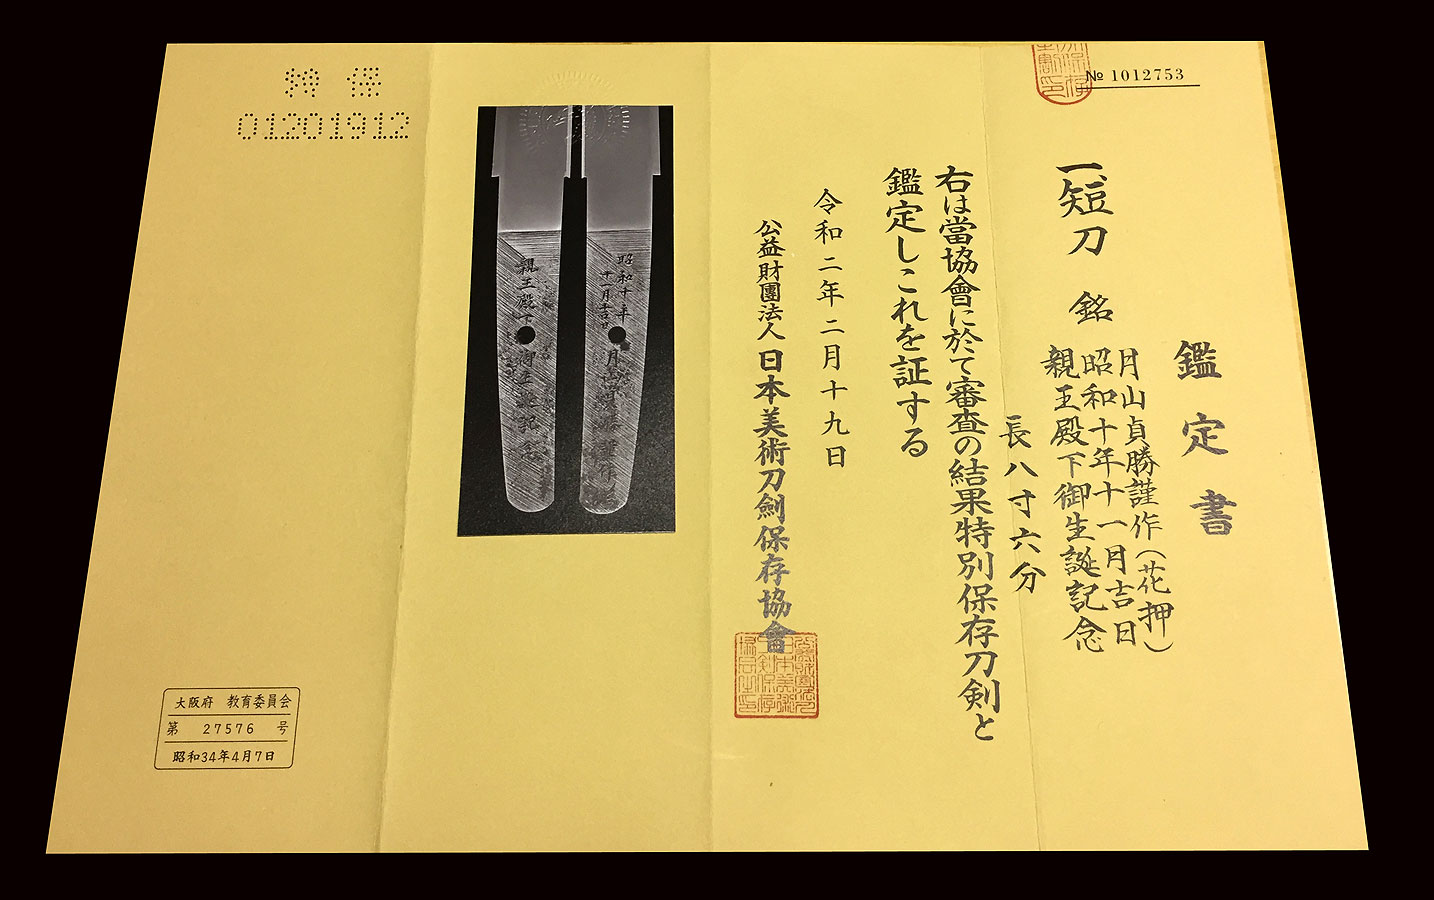 № 1012753
鑑定書
一、短刀 銘 月山貞勝謹作(花押)
昭和十年十一月吉日
親王殿下御生誕記念
長八寸六分
右は當協會に於て審査の結果特別保存刀剣と
鑑定しこれを証する
令和二年二月十九日
公益財團法人日本美術刀劍保存協會
昭和十年
十一月吉日
親王殿下御生誕記念
特保
01201912
大阪府 教育委員会
第 27576 号
昭和34年4月7日